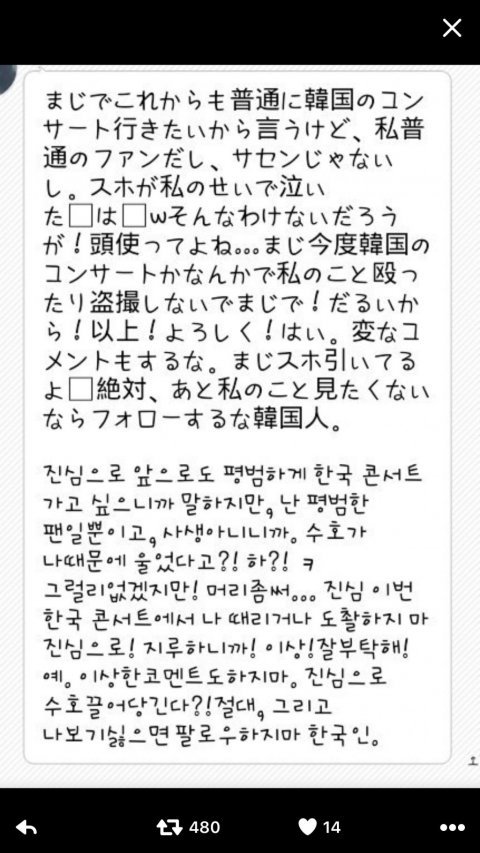 まじでこれからも普通に韓国のコン
サート行きたいから言うけど、私普
通のファンだし、サセンじゃない
し。スホが私のせいで泣い
た□は□wそんなわけないだろう
が！頭使ってよね...まじ今度韓国の
コンサートかなんかで私のこと殴っ
たり盗撮しないでまじで！だるいか
ら！以上！よろしく！はい。変なコ
メントもするな。まじスホ引いてる
よ□絶対、あと私のこと見たくない
ならフォローするな韓国人。
진심으로 앞으로도 평범하게 한국 콘서트
가고 싶으니까 말하지만, 난 평범한
팬일뿐이고, 사생아니니까. 수호가
나때문에 울었다고?! 하?! ㅋ
그럴리없겠지만! 머리좀써... 진심 이번
한국 콘서트에서 나 때리거나 도촬하지 마
진심으로! 지루하니까! 이상!잘부탁해!
예. 이상한코멘트도하지마. 진심으로
수호끌어당긴다?!절대, 그리고
나보기싫으면 팔로우하지마 한국인.
480 14